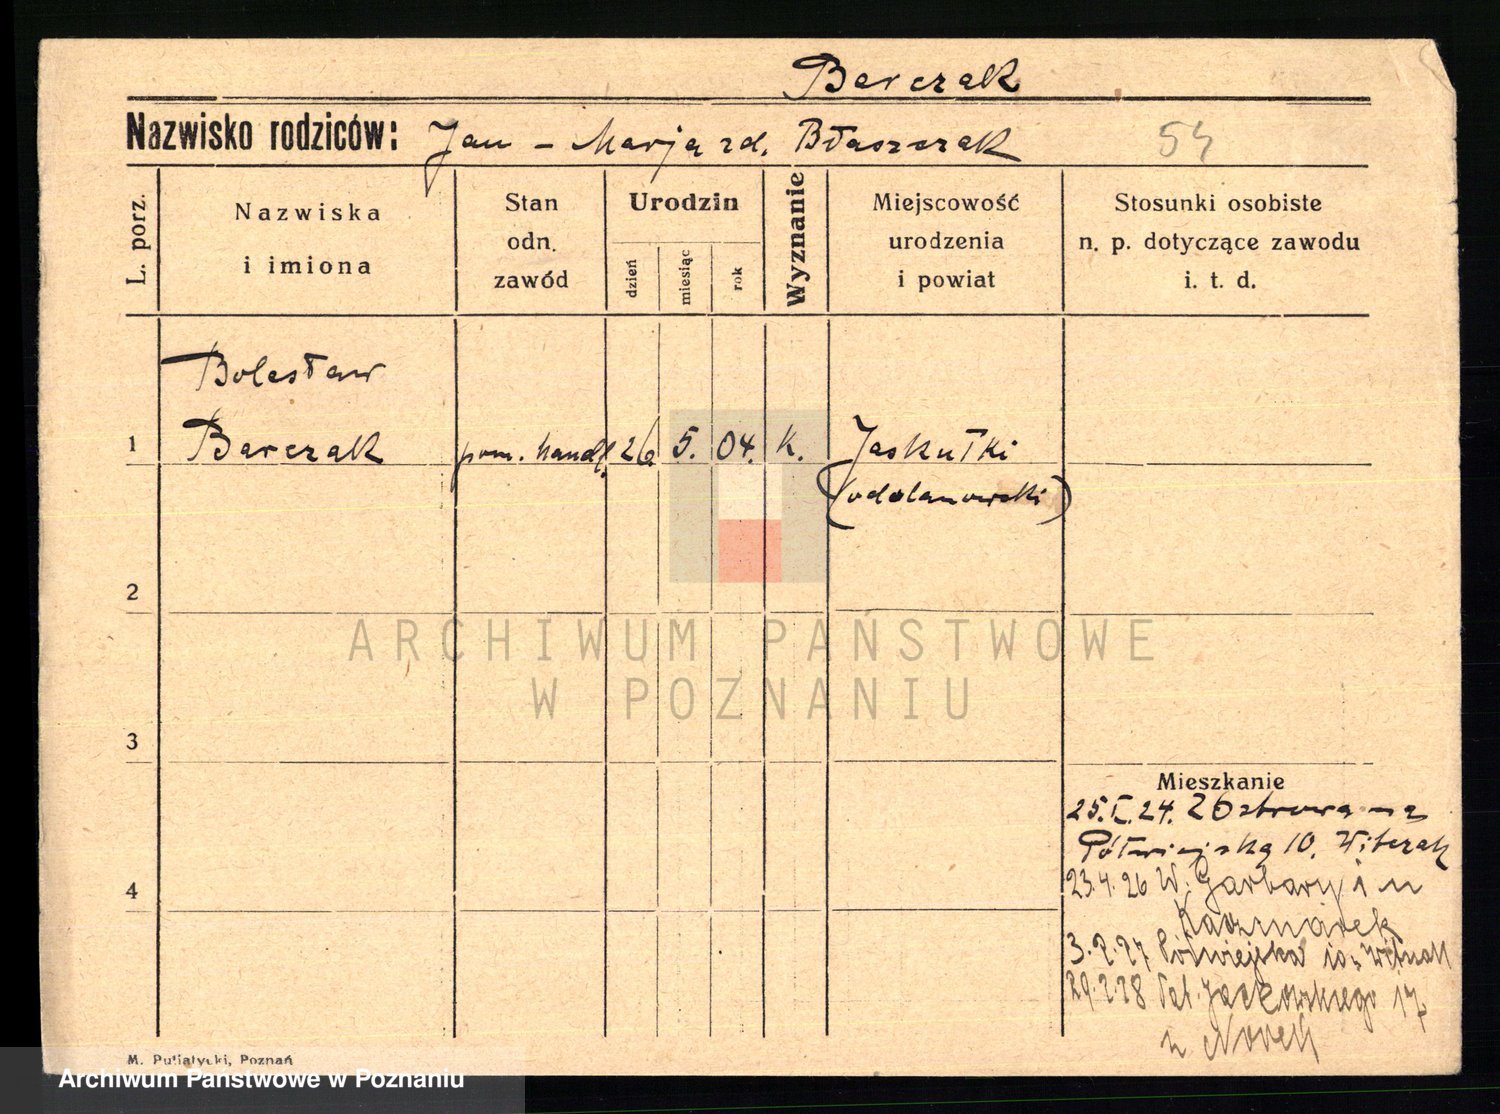 Barczak
Nazwisko rodziców: Jan - Marja zd. Błaszczak 54
L. porz.
Nazwiska
i imiona
Stan
odn.
zawód
Urodzin
dzień
miesiąc
rok
Wyznanie
Miejscowość
urodzenia
i powiat
Stosunki osobiste
n. p. dotyczące zawodu
i. t. d.
Bolesław
1 Barczak pom. handl. 26. 5. 04. k. Jaskułki
(odolanowski)
2
ARCHIWUM PAŃSTWOWE
W POZNANIU
3
Mieszkanie
25.I.24. Z Ostrowa na
Półwiejską 10.
4
23.4.26 W. Garbary
Kaczmarek
3.2.27 Półwiejska 10
29.2.28 Jackowskiego 17
M. Putiatycki, Poznań
Archiwum Państwowe w Poznaniu